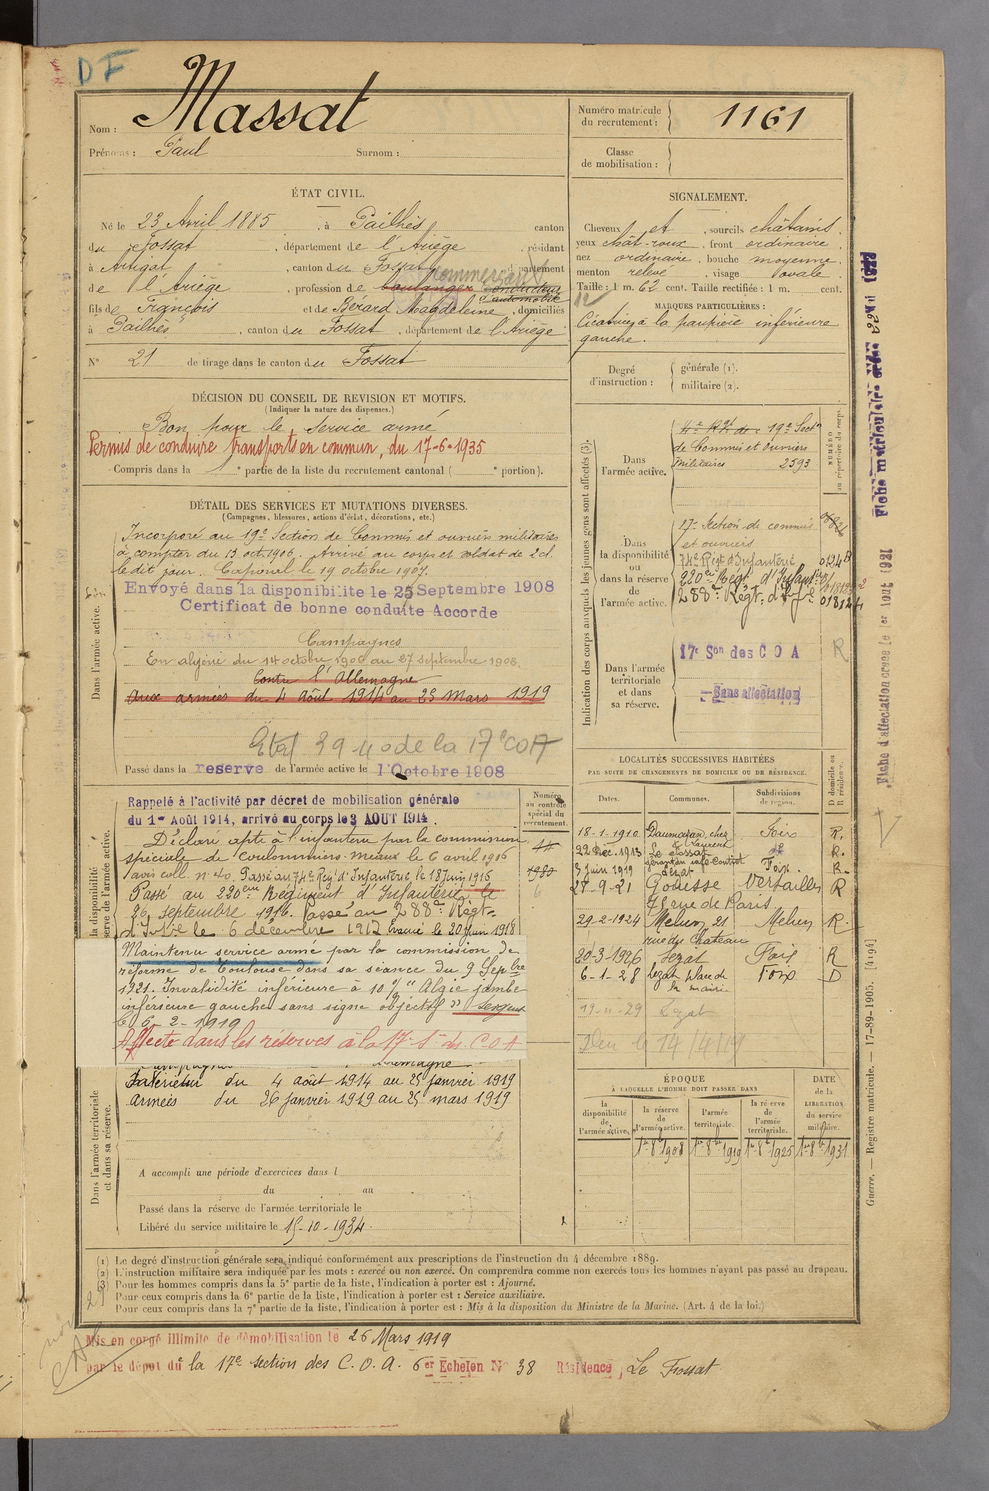 DF
Nom : Massat
Prénoms : Paul Surnom :
Numéro matricule du recrutement : 1161
Classe de mobilisation :
ÉTAT CIVIL.
Né le 23 Avril 1885, à Pailhès, canton
du Fossat, département de l'Ariège, résidant
à Artigat, canton du Fossat, département
Commerçant
de l'Ariège, profession de boulanger conducteur
d'automobile
fils de François et de Bérard Magdeleine, domiciliés
à Pailhès, canton du Fossat, département de l'Ariège
N° 21 de tirage dans le canton du Fossat
SIGNALEMENT.
Cheveux et, sourcils châtains,
yeux chât-roux, front ordinaire,
nez ordinaire, bouche moyenne
menton relevé, visage ovale.
Taille : 1 m. 62 cent. Taille rectifiée : 1 m. cent.
MARQUES PARTICULIÈRES :
Cicatrice à la paupière inférieure
gauche.
Degré d'instruction : générale (1).
militaire (2).
DÉCISION DU CONSEIL DE REVISION ET MOTIFS.
(Indiquer la nature des dispenses.)
Bon pour le service armé
Permis de conduire transports en commun, du 17-6-1935
Compris dans la 1e partie de la liste du recrutement cantonal ( e portion).
DÉTAIL DES SERVICES ET MUTATIONS DIVERSES.
(Campagnes, blessures, actions d'éclat, décorations, etc.)
Dans l'armée active.
Incorporé au 19e Section de Commis et ouvriers militaires
à compter du 13 oct. 1906. Arrivé au corps et soldat de 2 cl.
le dit jour. Caporal le 19 octobre 1907.
Envoyé dans la disponibilité le 25 Septembre 1908
Certificat de bonne conduite Accorde
Campagnes
En algérie du 14 octobre 1906 au 27 septembre 1908.
Contre l'Allemagne
Aux armées du 4 Août 1914 au 25 Mars 1919
Etat 39-40 de la 17e COA
Passé dans la reserve de l'armée active le 1 Octobre 1908
Rappelé à l'activité par décret de mobilisation générale
du 1er Août 1914, arrivé au corps le 3 AOUT 1914.
Déclaré apte à l'infanterie par la commission
spéciale de Coulommiers-Meaux le 6 avril 1916
1 avis coll. n° 40. Passé au 74e Reg' d'Infanterie le 18 Juin 1916
Passé au 220ème Régiment d'Infanterie le
26 septembre 1916. Passé au 288e Régt
d'Infie le 6 décembre 1917 Evacué le 20 Juin 1918
Maintenu service armé par la commission de
réforme de Toulouse dans sa séance du 9 Septbre
1921. Invalidité inférieure à 10 % "Algie jambe
inférieure gauche sans signe objectif" Sergent
le 6-2-1919
Affecté dans les réserves à la 17e Son de C.O.A
Intérieur du 4 août 1914 au 25 janvier 1919
armées du 26 janvier 1919 au 25 mars 1919
Dans l'armée territoriale et dans sa réserve.
A accompli une période d'exercices dans l
du au
Passé dans la réserve de l'armée territoriale le
Libéré du service militaire le 15-10-1934.
Numéro au contrôle spécial du recrutement.
Indication des corps auxquels les jeunes gens sont affectés (3).
NUMÉRO au répertoire du corps.
Dans l'armée active.
19e Sect
de Commis et ouvriers
militaires 2593
Dans la disponibilité ou dans la réserve de l'armée active.
17e Section de commis
et ouvriers
74e Régt d'Infanterie
220e Régt d'Infant
288e Régt d'Infie 018124
Dans l'armée territoriale et dans sa réserve.
17e Son des C O A R
Sans affectation
LOCALITÉS SUCCESSIVES HABITÉES
PAR SUITE DE CHANGEMENTS DE DOMICILE OU DE RÉSIDENCE.
Dates. Communes. Subdivisions de région. D domicile ou R résidence.
18-1-1910 Daumazan, chez Foix R.
22 Déc. 1913 Le Fossat R.
3 Juin 1919 Lézat Foix R.
27-9-21 Gonesse Versailles R
rue de Paris
29-2-1924 Melun, 21 Melun R.
rue du Château
20-3-1926 Lézat Foix R
6-1-28 Lézat place de Foix D
la mairie
19-11-29 Lézat
ÉPOQUE
À LAQUELLE L'HOMME DOIT PASSER DANS
la disponibilité de l'armée active.
la réserve de l'armée active.
l'armée territoriale.
la réserve de l'armée territoriale.
DATE de la LIBÉRATION du service militaire.
1er 8bre 1908 1er 8bre 1919 1er 8bre 1925 1er 8bre 1931
(1) Le degré d'instruction générale sera indiqué conformément aux prescriptions de l'instruction du 4 décembre 1889.
(2) L'instruction militaire sera indiquée par les mots : exercé ou non exercé. On comprendra comme non exercés tous les hommes n'ayant pas passé au drapeau.
(3) Pour les hommes compris dans la 5e partie de la liste, l'indication à porter est : Ajourné.
Pour ceux compris dans la 6e partie de la liste, l'indication à porter est : Service auxiliaire.
Pour ceux compris dans la 7e partie de la liste, l'indication à porter est : Mis à la disposition du Ministre de la Marine. (Art. 4 de la loi.)
Mis en congé illimité de démobilisation le 26 Mars 1919
par le dépôt de la 17e section des C.O.A. 6er Echelon N° 38 Résidence, Le Fossat
Guerre. — Registre matricule. — 17-89-1905. [4194]
Fiche d'affectation créée le 1er Aout 1921